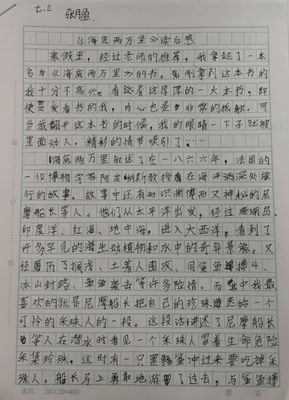 七.三
《海底两万里》读后感
寒假里，经过老师的推荐，我拿起了一本
名为《海底两万里》的书。我刚拿到这本书的
我十分不高兴。看这着这厚厚的一大本书，即
使喜爱看书的我，内心也是非常的抵触。可
当我翻开这本书的时候，我的眼睛一下子就被
里面动人，精彩的情节吸引了。
《海底两万里》叙述了在一八六六年，法国的
一位博物学家阿龙纳斯教授在海洋深处旅
行的故事。故事中还有知识渊博而又神秘的尼
摩船长等人。他们从太平洋出发，经过珊瑚岛、
印度洋、红海、地中海，进入大西洋，看到了
许多罕见的海生动植物和水中的奇异景象。又
经历了搁浅、土著人围攻、同鲨鱼搏斗、
冰山封路、章鱼袭击等许多险情。而其中我最
喜欢的就是尼摩船长把自己的珍珠送给一个
可怜的采珠人的一段。这段话讲述了尼摩船长
等人在潜水时看见一个采珠人冒着生命危险
采集珍珠。这时有一只黑鲨鱼冲过来要吃掉采
珠人。船长马上勇敢地游了过去，与鲨鱼搏
20×20=400